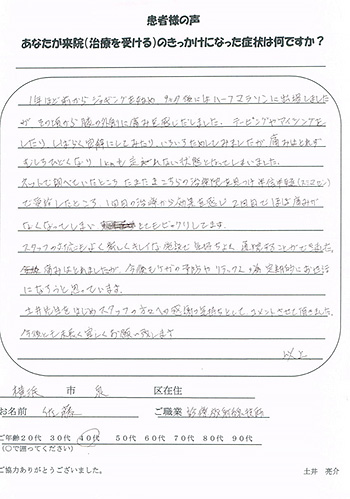 患者様の声
あなたが来院(治療を受ける)のきっかけになった症状は何ですか?
1年ほど前からジョギングを始め 9ヶ月後にはハーフマラソンに出場しました
が その頃から膝の外側に痛みを感じだしました。テーピングやアイシングを
したり、しばらく安静にしてみたり、いろいろためしてみましたが痛みはとれず
むしろひどくなり 1kmも走れない状態となってしまいました。
ネットで調べていたところ たまたまこちらの治療院を見つけ半信半疑(スミマセン)
で受診したところ、1回目の治療から効果を感じ 2回目でほぼ痛みが
なくなってしまい とてもビックリしてます。
スタッフの方々もよく 楽しくキレイな施設で気持ちよく通院することができました。
痛みはとれましたが、今後もケガの予防やリラックスの為 定期的にお世話
になろうと思っています。
土井先生をはじめスタッフの方々への感謝の気持ちとして、コメントさせて頂きました。
今後とも末長く宜しくお願い致します
以上
横浜 市 泉 区在住
お名前 佐藤 ご職業 診療放射線技師
ご年齢20代 30代 40代 50代 60代 70代 80代 90代
(○で囲ってください)
ご協力ありがとうございました。 土井 亮介